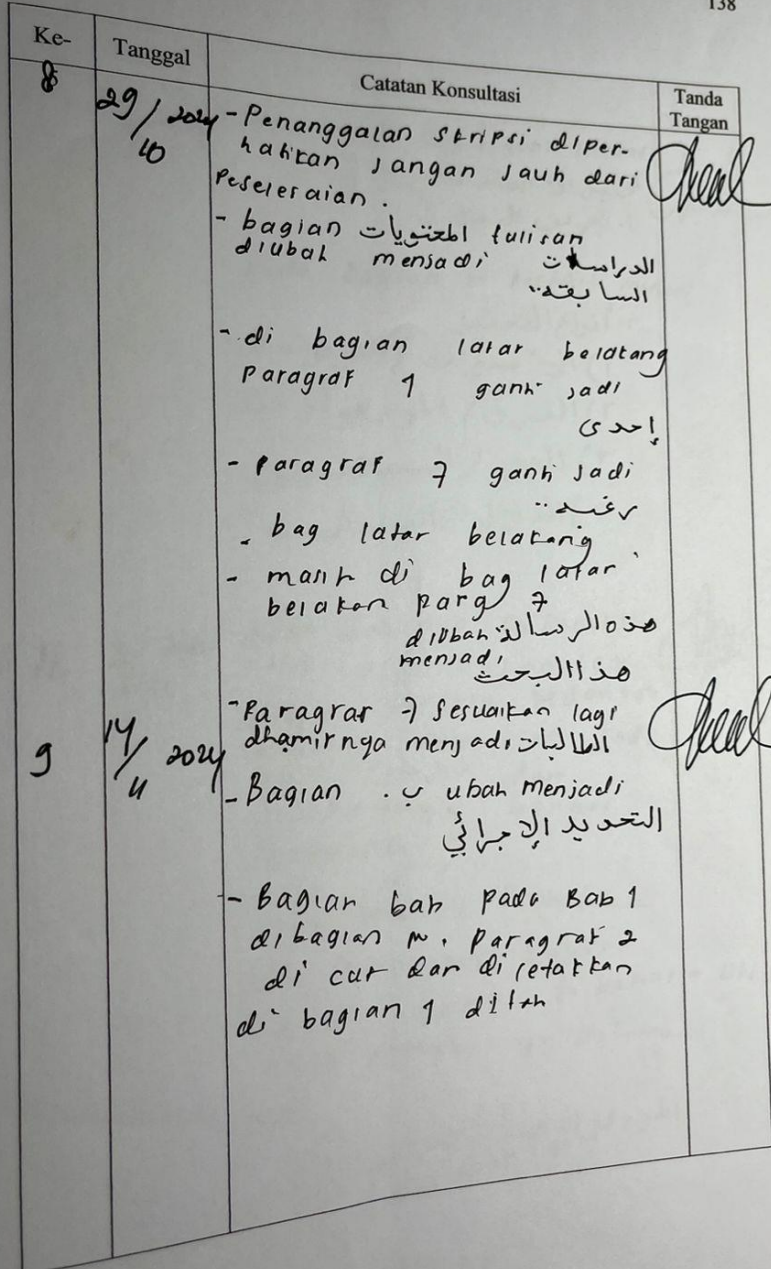 138
Ke- Tanggal Catatan Konsultasi Tanda Tangan
8 29/10 2024 - Penanggalan skripsi diper-
hatikan jangan jauh dari
Peselesaian.
- bagian المحتويات tulisan
diubah menjadi الدراسات
السابقة..
- di bagian latar belatang
Paragraf 1 ganti jadi
إحدى
- Paragraf 7 ganti jadi
رغبة..
- bag latar belakang
- masih di bag latar
belakan parg 7
diubah هذه الرسالة
menjadi
هذا البحث
9 14/11 2024 - Paragraf 7 Sesuaikan lagi
dhamirnya menjadi الطالبات
- Bagian . ب ubah menjadi
التحديد الإجرائي
- Bagian bab pada Bab 1
dibagian . Paragraf 2
di cut dan di letakkan
di bagian 1